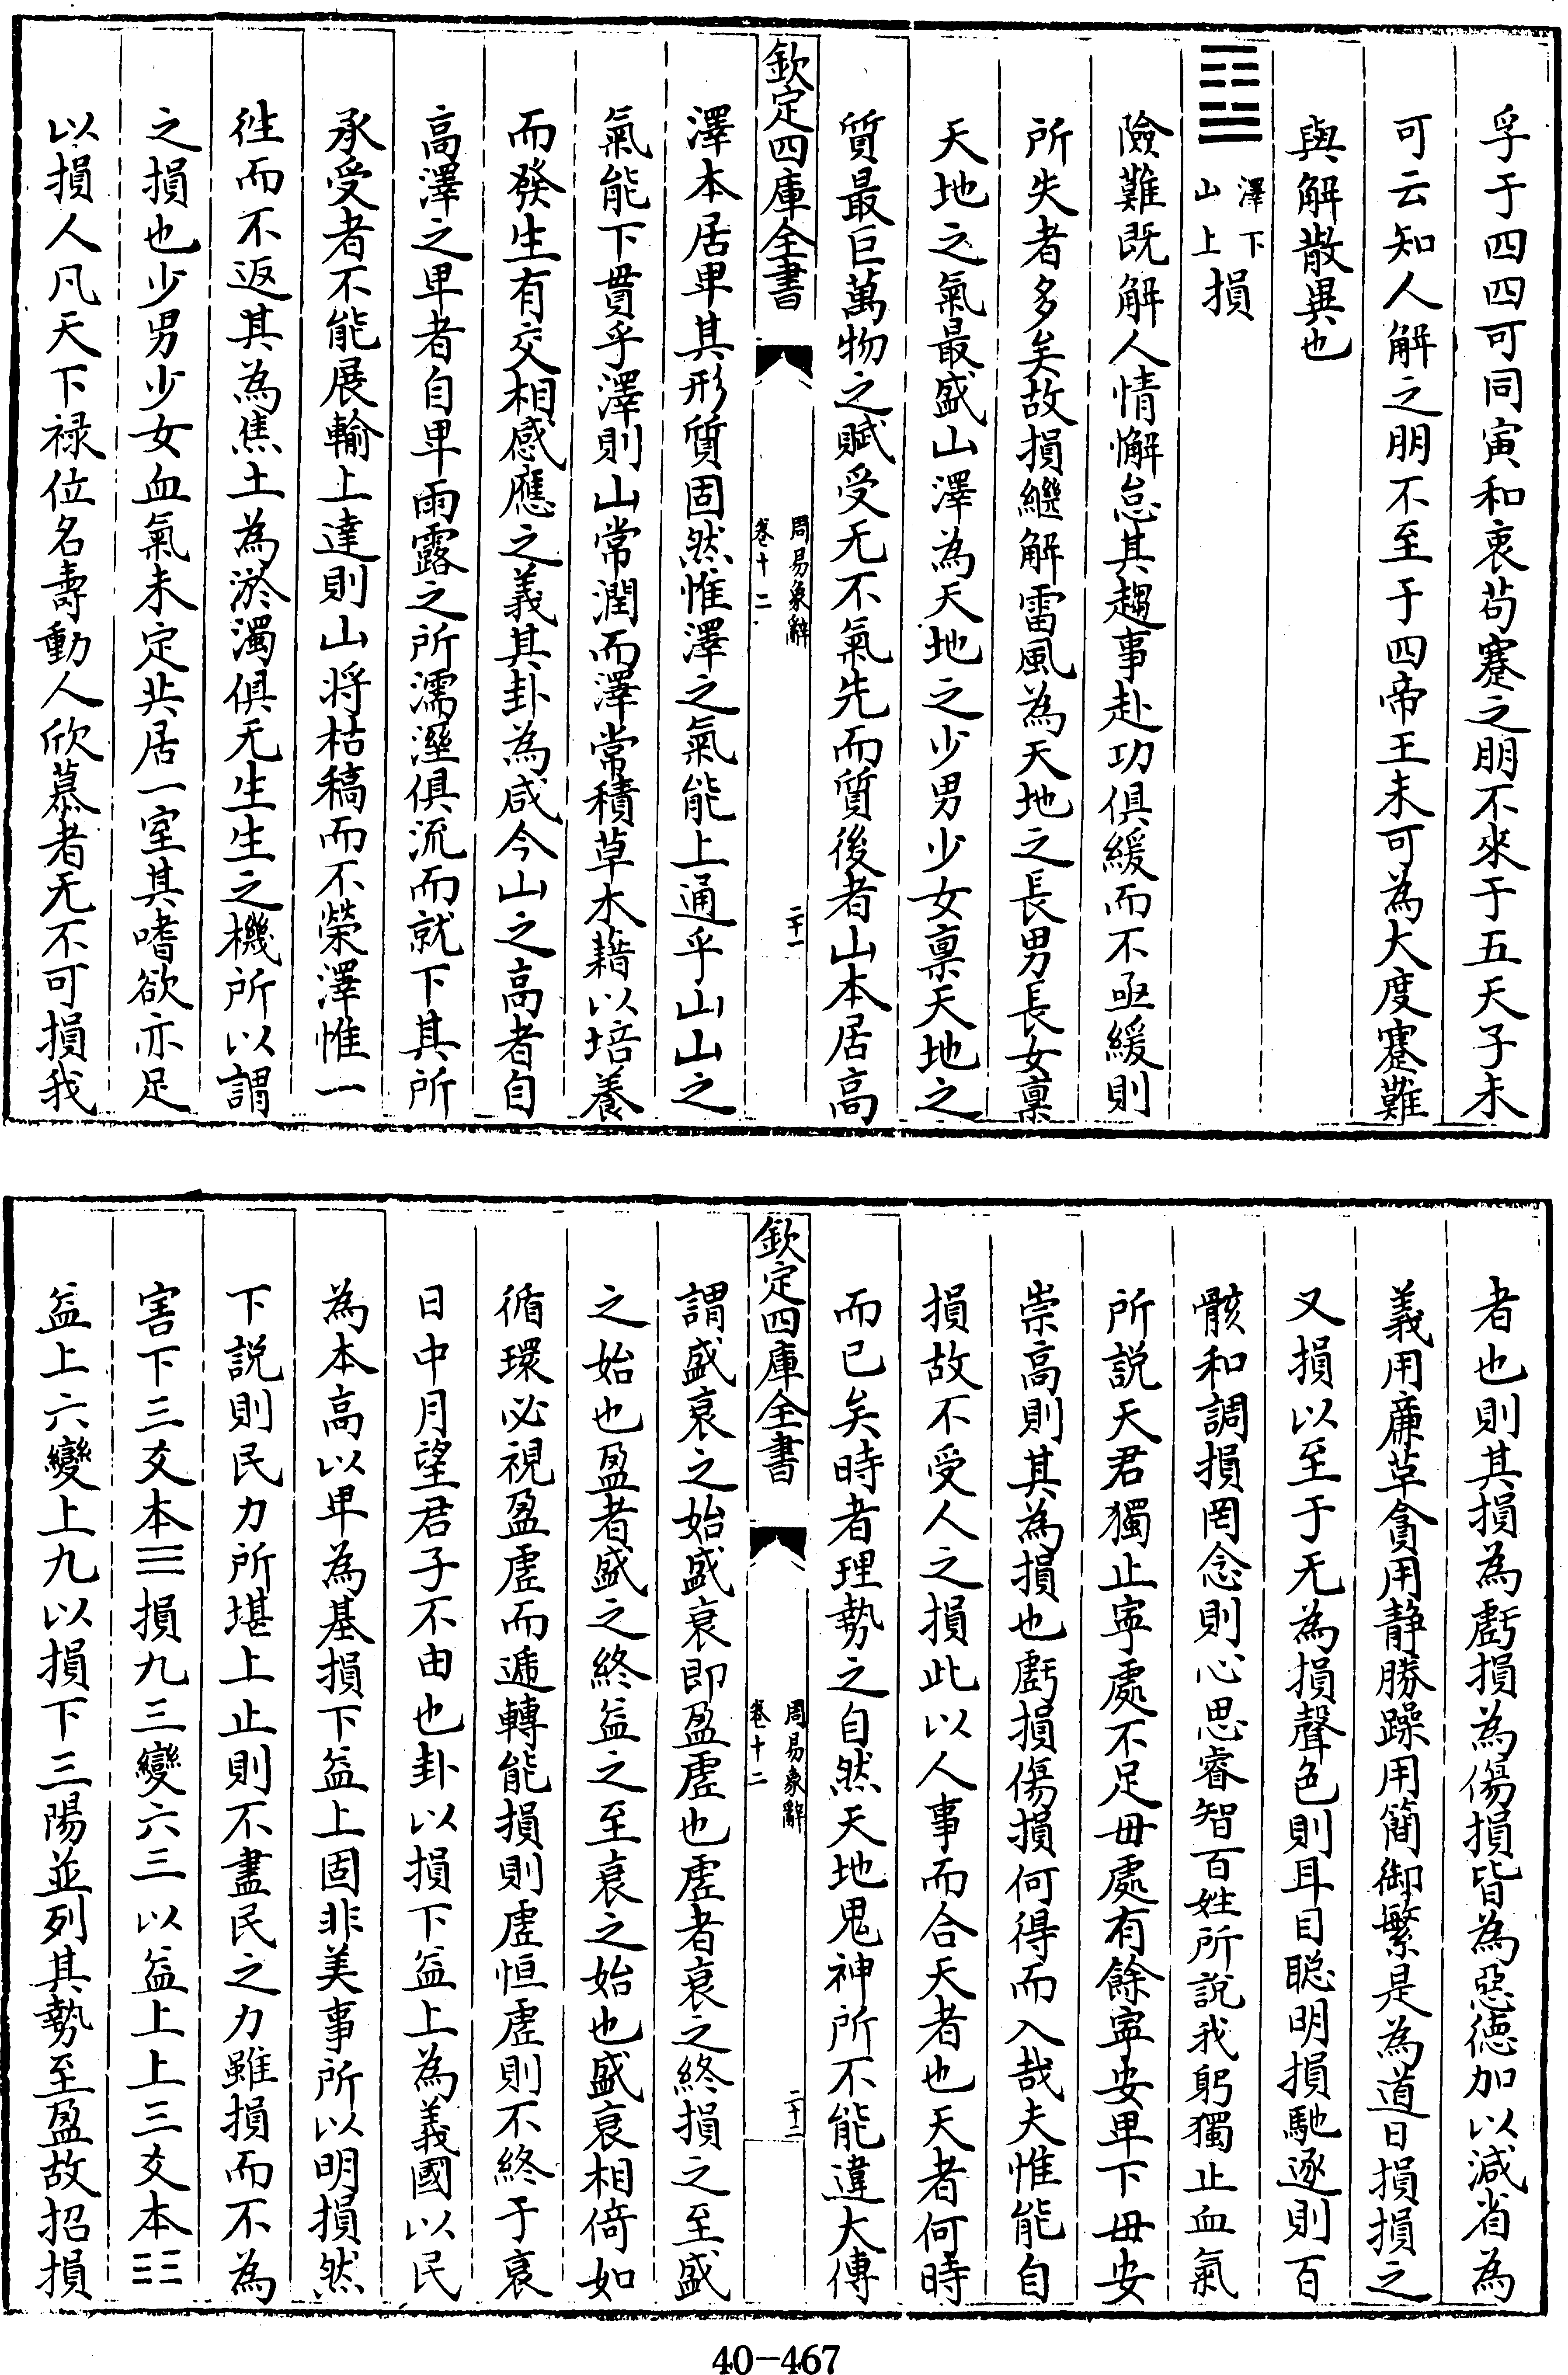 孚于四四可同寅和衷苟蹇之朋不來于五天子未
可云知人解之朋不至于四帝王未可為大度蹇難
與解散異也
䷨澤下山上損
險難既解人情懈怠其趨事赴功俱緩而不亟緩則
所失者多矣故損繼解雷風為天地之長男長女禀
天地之氣最盛山澤為天地之少男少女禀天地之
質最巨萬物之賦受无不氣先而質後者山本居高
欽定四庫全書
周易象辭
卷十二
二十一
澤本居卑其形質固然惟澤之氣能上通乎山山之
氣能下貫乎澤則山常潤而澤常積草木藉以培養
而發生有交相感應之義其卦為咸今山之高者自
高澤之卑者自卑雨露之所濡溼俱流而就下其所
承受者不能展輸上達則山將枯稿而不榮澤惟一
徃而不返其為焦土為淤濁俱无生生之機所以謂
之損也少男少女血氣未定共居一室其嗜欲亦足
以損人凡天下禄位名壽動人欣慕者无不可損我
者也則其損為虧損為傷損皆為惡德加以減省為
義用廉革貪用静勝躁用簡御繁是為道日損損之
又損以至于无為損聲色則耳目聪明損馳逐則百
骸和調損罔念則心思睿智百姓所說我躬獨止血氣
所説天君獨止寧處不足毋處有餘寧安卑下毋安
崇高則其為損也虧損傷損何得而入哉夫惟能自
損故不受人之損此以人事而合天者也天者何時
而已矣時者理勢之自然天地鬼神所不能違大傳
欽定四庫全書
周易象辭
卷十二
二十二
謂盛衰之始盛衰即盈虚也虚者衰之終損之至盛
之始也盈者盛之終益之至衰之始也盛衰相倚如
循環必視盈虚而遞轉能損則虚恒虚則不終于衰
日中月望君子不由也卦以損下益上為義國以民
為本高以卑為基損下益上固非美事所以明損然
下説則民力所堪上止則不盡民之力雖損而不為
害下三爻本☰損九三變六三以益上上三爻本☷
益上六變上九以損下三陽並列其勢至盈故招損
40-467